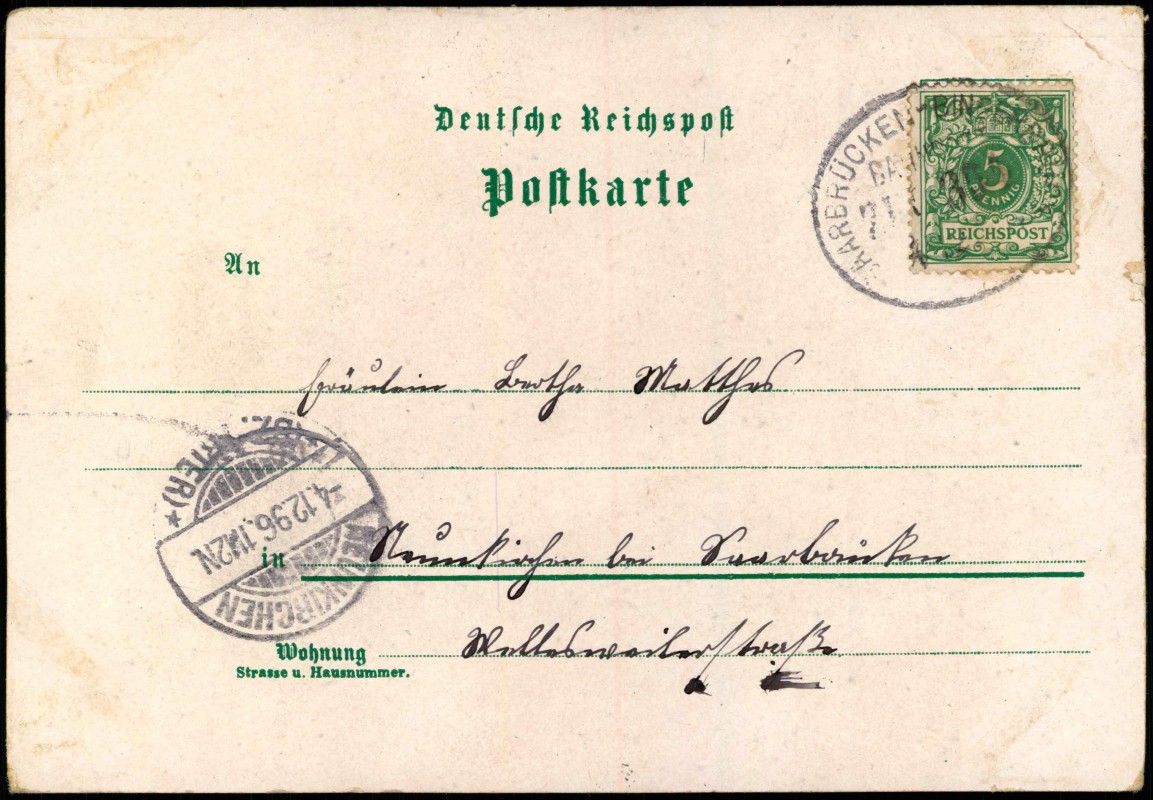 Deutsche Reichspost
Postkarte
SAARBRÜCKEN-BIN
5
PFENNIG
REICHSPOST
An
Fräulein Bertha Matthes
(BZ. TRIER)
4.12.96.11-12N.
NEUNKIRCHEN
in Neunkirchen bei Saarbrücken
Wellesweilerstraße
Wohnung
Strasse u. Hausnummer.